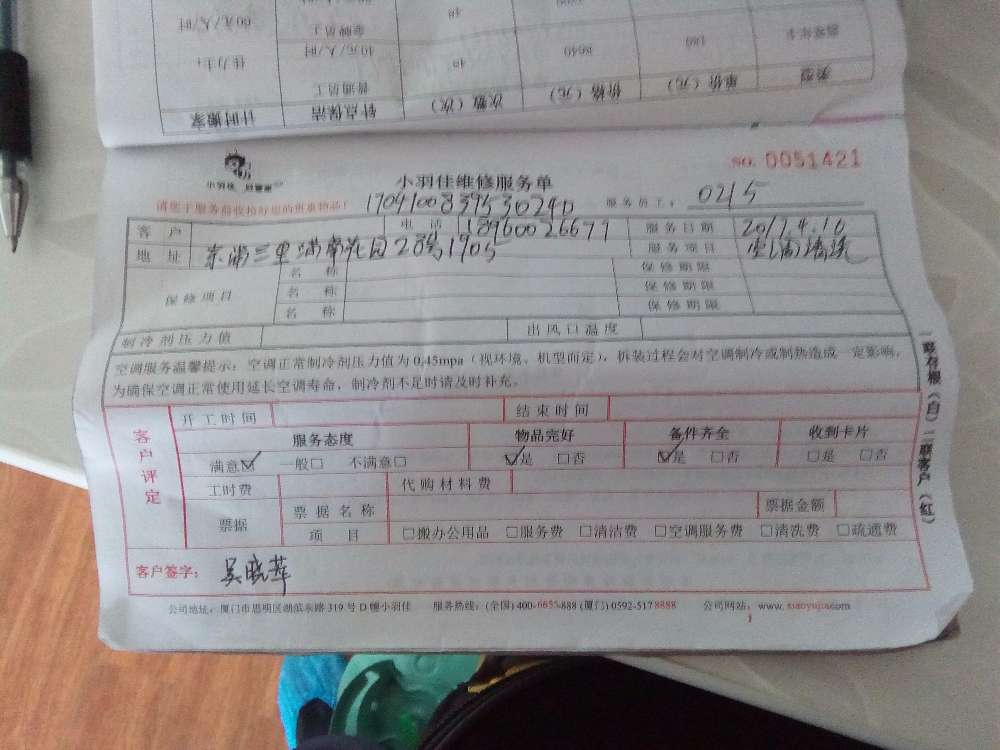 计时搬家 针点保洁 次数（次） 价格（元） 单价（元） 类型
佳力士： 普通员工
60元/人/时 40元/人/时 48 8640 180
金牌员工
小羽佳 好管家 NO. 0051421
小羽佳维修服务单
请您于服务前收拾好您的贵重物品！ 服务员工： 0215
客 户 电 话 18960026677 服务日期 2017.4.16
地 址 东浦三里 28号1705 服务项目 空调清洗
名 称 保修期限
保修项目 名 称 保修期限
名 称 保修期限
制冷剂压力值 出风口温度
空调服务温馨提示：空调正常制冷剂压力值为 0.45mpa（视环境、机型而定），拆装过程会对空调制冷或制热造成一定影响，
为确保空调正常使用延长空调寿命，制冷剂不足时请及时补充。
客户评定
开工时间 结束时间
服务态度 物品完好 备件齐全 收到卡片
满意☑ 一般□ 不满意□ ☑是 □否 ☑是 □否 □是 □否
工时费 代购材料费
票据 票据名称 票据金额
项 目 □搬办公用品 □服务费 □清洁费 □空调服务费 □清洗费 □疏通费
客户签字： 吴晓苹
公司地址：厦门市思明区湖滨东路 319 号 D 幢小羽佳 服务热线：(全国) 400-6655-888 (厦门) 0592-5178888 公司网站：www. xiaoyujia.com
一联存根（白）二联客户（红）